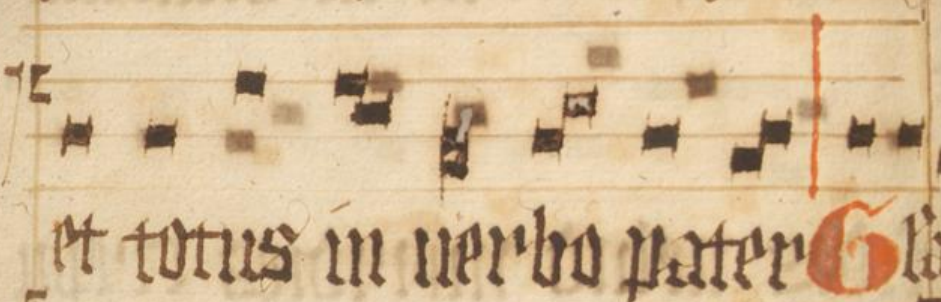 et totus in uerbo pater Gl